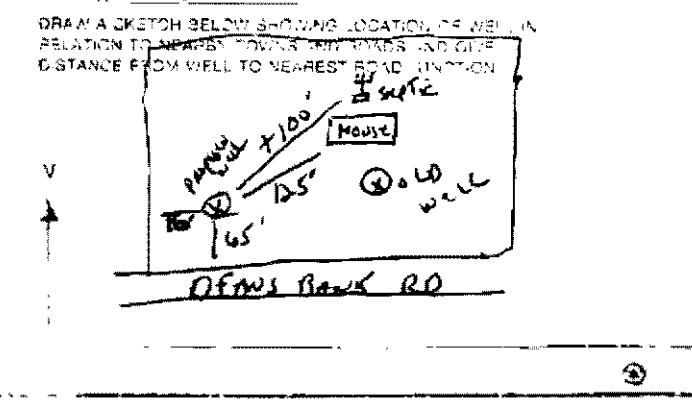 DRAW A SKETCH BELOW SHOWING LOCATION OF WELL IN
RELATION TO NEARBY TOWNS AND ROADS AND GIVE
DISTANCE FROM WELL TO NEAREST ROAD JUNCTION
SEPTIC
+100'
HOUSE
WELL
125'
OLD
WELL
65'
DEANS BANK RD